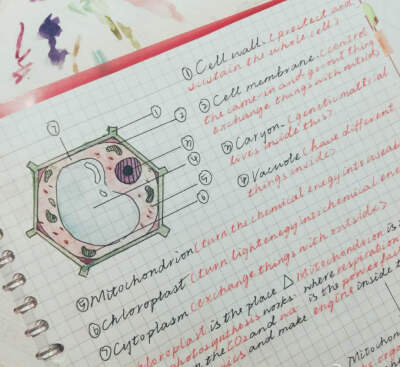 ① Cell wall. (protect and
sustain the whole cell)
② Cell membrane. (control
the came-in and go-out thing
exchange things with outside)
③ Caryon. (genetic material
lives inside this)
④ Vacuole (have different
things inside)
⑤ Mitochondrion (turn the chemical energy into
⑥ Chloroplast (turn light energy into chemical ene
⑦ Cytoplasm (exchange things with outside)
chloroplast is the place △ Mitochondrion is
photosynthesis where respiration
the CO2 and is the powerful
and make engine inside t
Mitoch
① ② ③ ④ ⑤ ⑥ ⑦